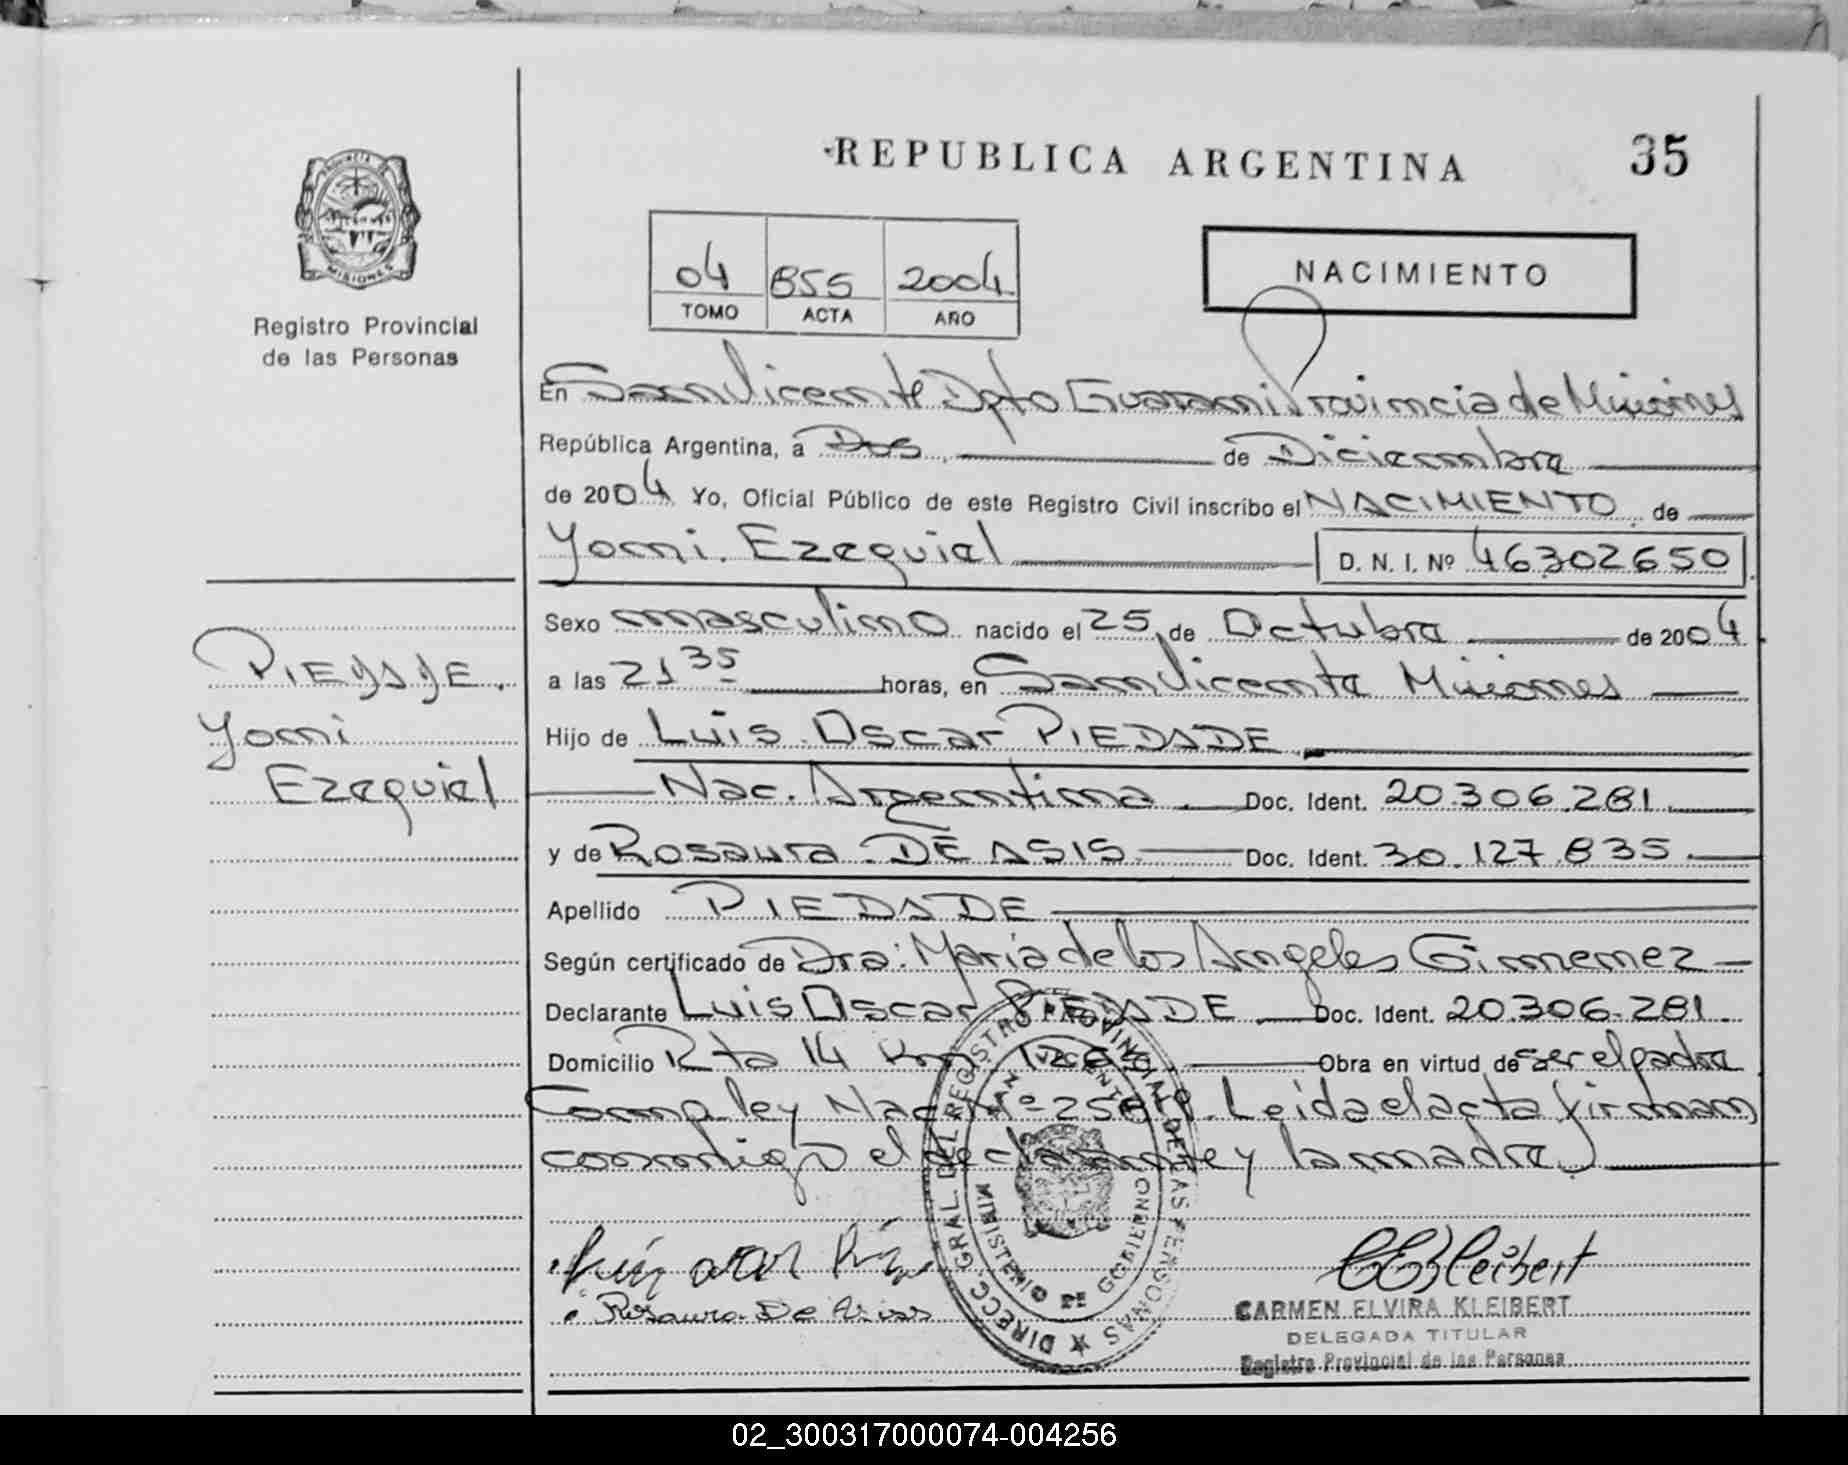 REPUBLICA ARGENTINA
35
PROVINCIA
MISIONES
Registro Provincial
de las Personas
04 855 2004
TOMO ACTA AÑO
NACIMIENTO
En San Vicente Dpto Guarani Provincia de Misiones
República Argentina, a Dos de Diciembre
de 2004 Yo, Oficial Público de este Registro Civil inscribo el NACIMIENTO de
Yoni Ezequiel D. N. I. Nº 46302650
Sexo masculino nacido el 25 de Octubre de 2004
a las 21 35 horas, en San Vicente Misiones
Hijo de Luis Oscar PIEDADE
Nac. Argentina. Doc. Ident. 20.306.281
y de Rosaura DE ASIS Doc. Ident. 30.127.835
Apellido PIEDADE
Según certificado de Dra: María de los Angeles Gimenez
Declarante Luis Oscar PIEDADE Doc. Ident. 20.306.281.
Domicilio Rta 14 Km Obra en virtud de ser el padre
Leida el acta firman
conmigo el declarante y la madre
PIEDADE.
Yoni
Ezequiel
DIRECC. GRAL. DEL REGISTRO PROVINCIAL DE LAS PERSONAS
SAN VICENTE
MINISTERIO DE GOBIERNO
Rosaura De Asis
CEKleibert
CARMEN ELVIRA KLEIBERT
DELEGADA TITULAR
Registro Provincial de las Personas
02_300317000074-004256